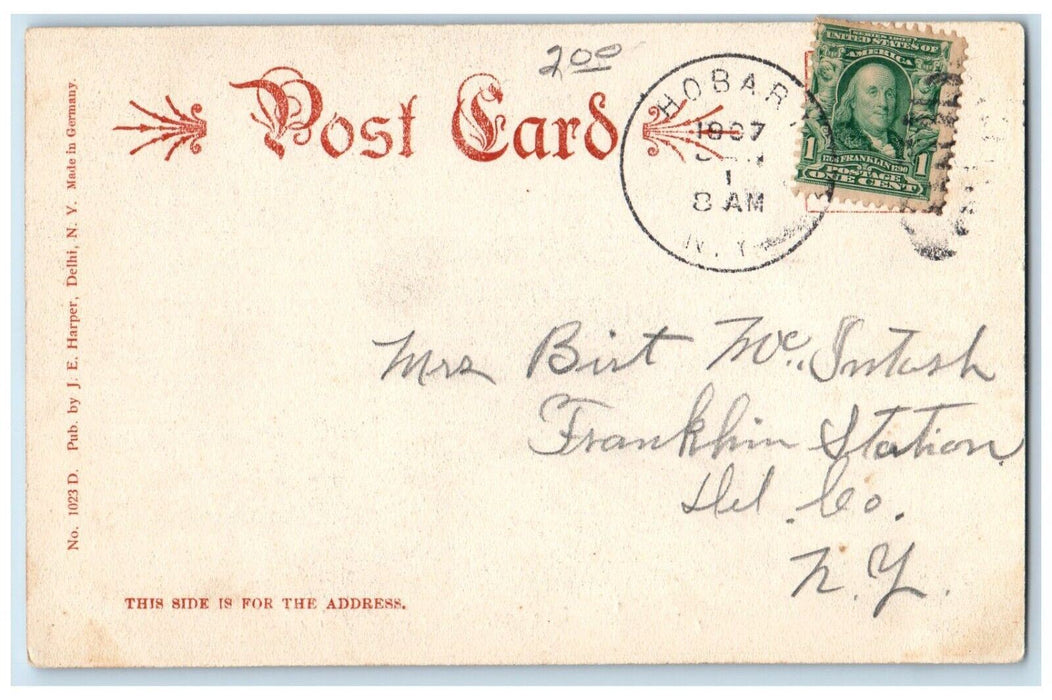 200
Post Card
HOBAR
1907
1
8 AM
N.Y.
SERIES 1902
UNITED STATES OF
AMERICA
1
1
1706 FRANKLIN 1790
POSTAGE
ONE CENT
Mrs Birt Mc.Intosh
Franklin Station
Del. Co.
N.Y.
No. 1023 D. Pub. by J. E. Harper, Delhi, N. Y. Made in Germany.
THIS SIDE IS FOR THE ADDRESS.